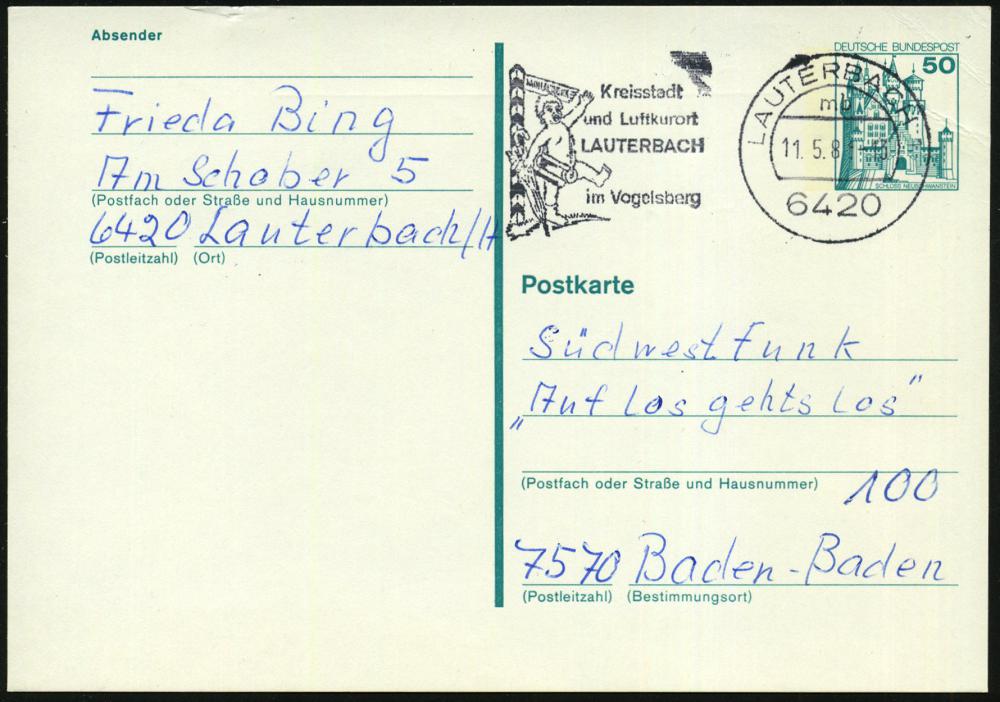 Absender
Frieda Bing
Am Schober 5
(Postfach oder Straße und Hausnummer)
6420 Lauterbach/H
(Postleitzahl) (Ort)
Kreisstadt
und Luftkurort
LAUTERBACH
im Vogelsberg
LAUTERBACH
mb
11.5.8
6420
DEUTSCHE BUNDESPOST
50
SCHLOSS NEUSCHWANSTEIN
Postkarte
Südwestfunk
„Auf Los gehts Los"
(Postfach oder Straße und Hausnummer)
100
7570 Baden-Baden
(Postleitzahl) (Bestimmungsort)